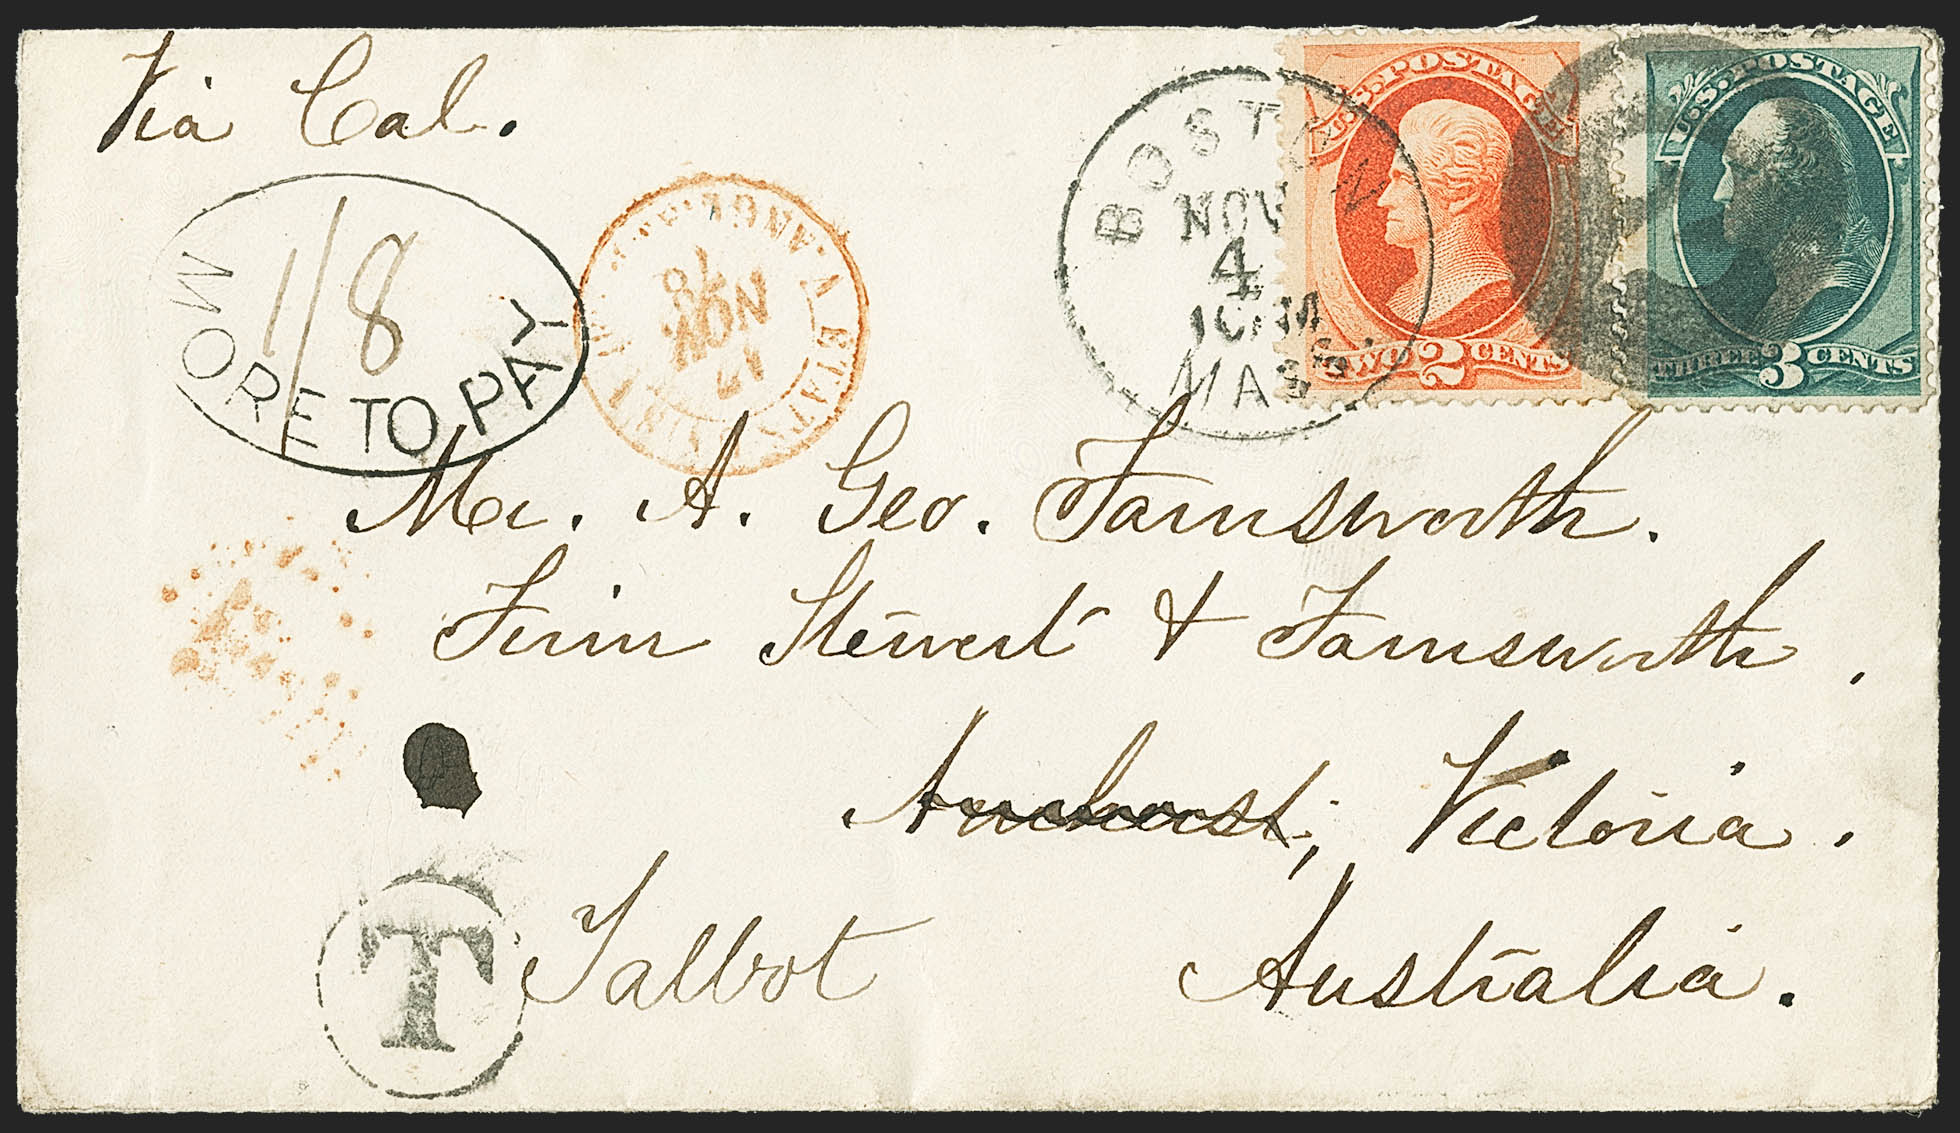 Via Cal.
1/8
MORE TO PAY
21
NOV
78
BOSTON
NOV
4
MASS.
U.S. POSTAGE
TWO 2 CENTS
U.S. POSTAGE
THREE 3 CENTS
Mr. A. Geo. Farnsworth.
Firm Stewart & Farnsworth.
Amherst, Victoria.
T
Talbot
Australia.